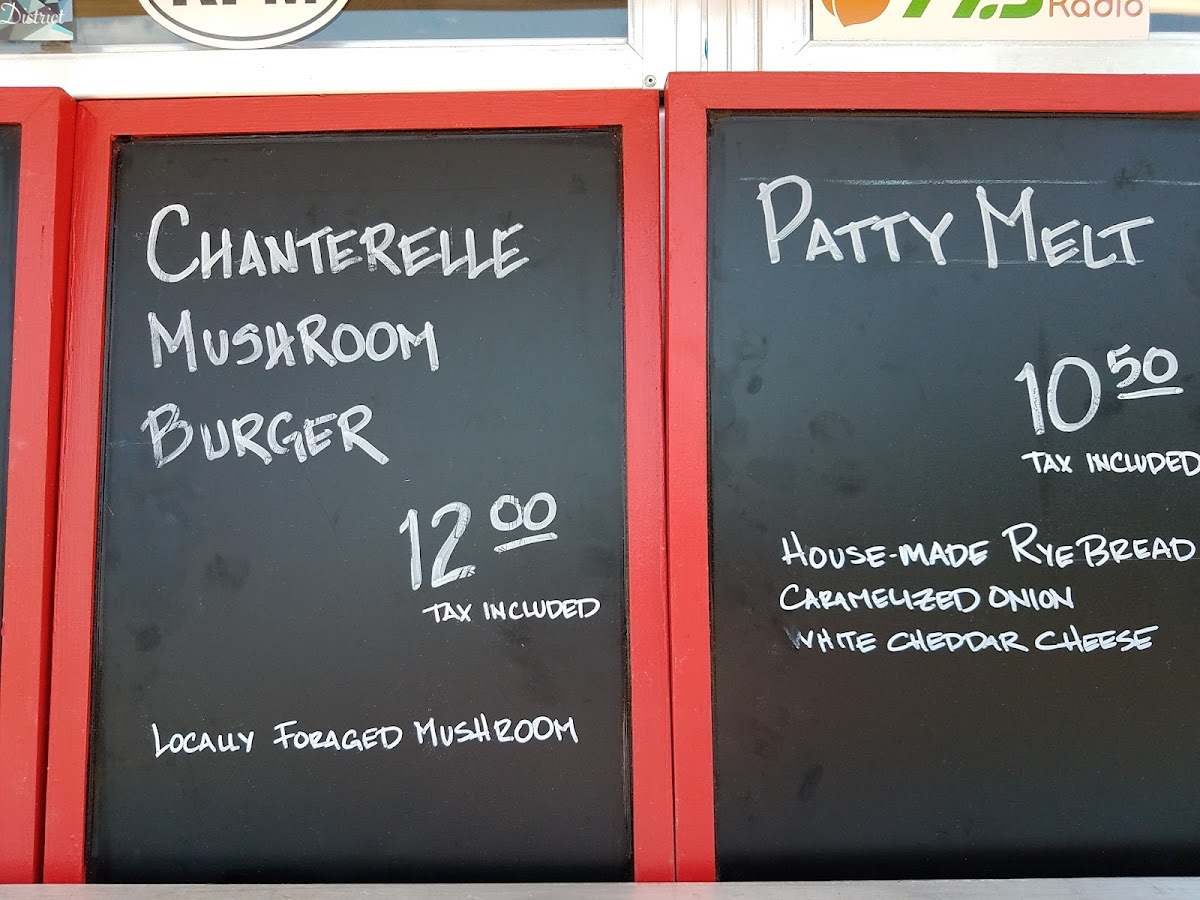 District
Radio
Chanterelle
Mushroom
Burger
12 00
Tax Included
Locally Foraged Mushroom
Patty Melt
10 50
Tax Included
House-made Rye Bread
Caramelized Onion
White Cheddar Cheese